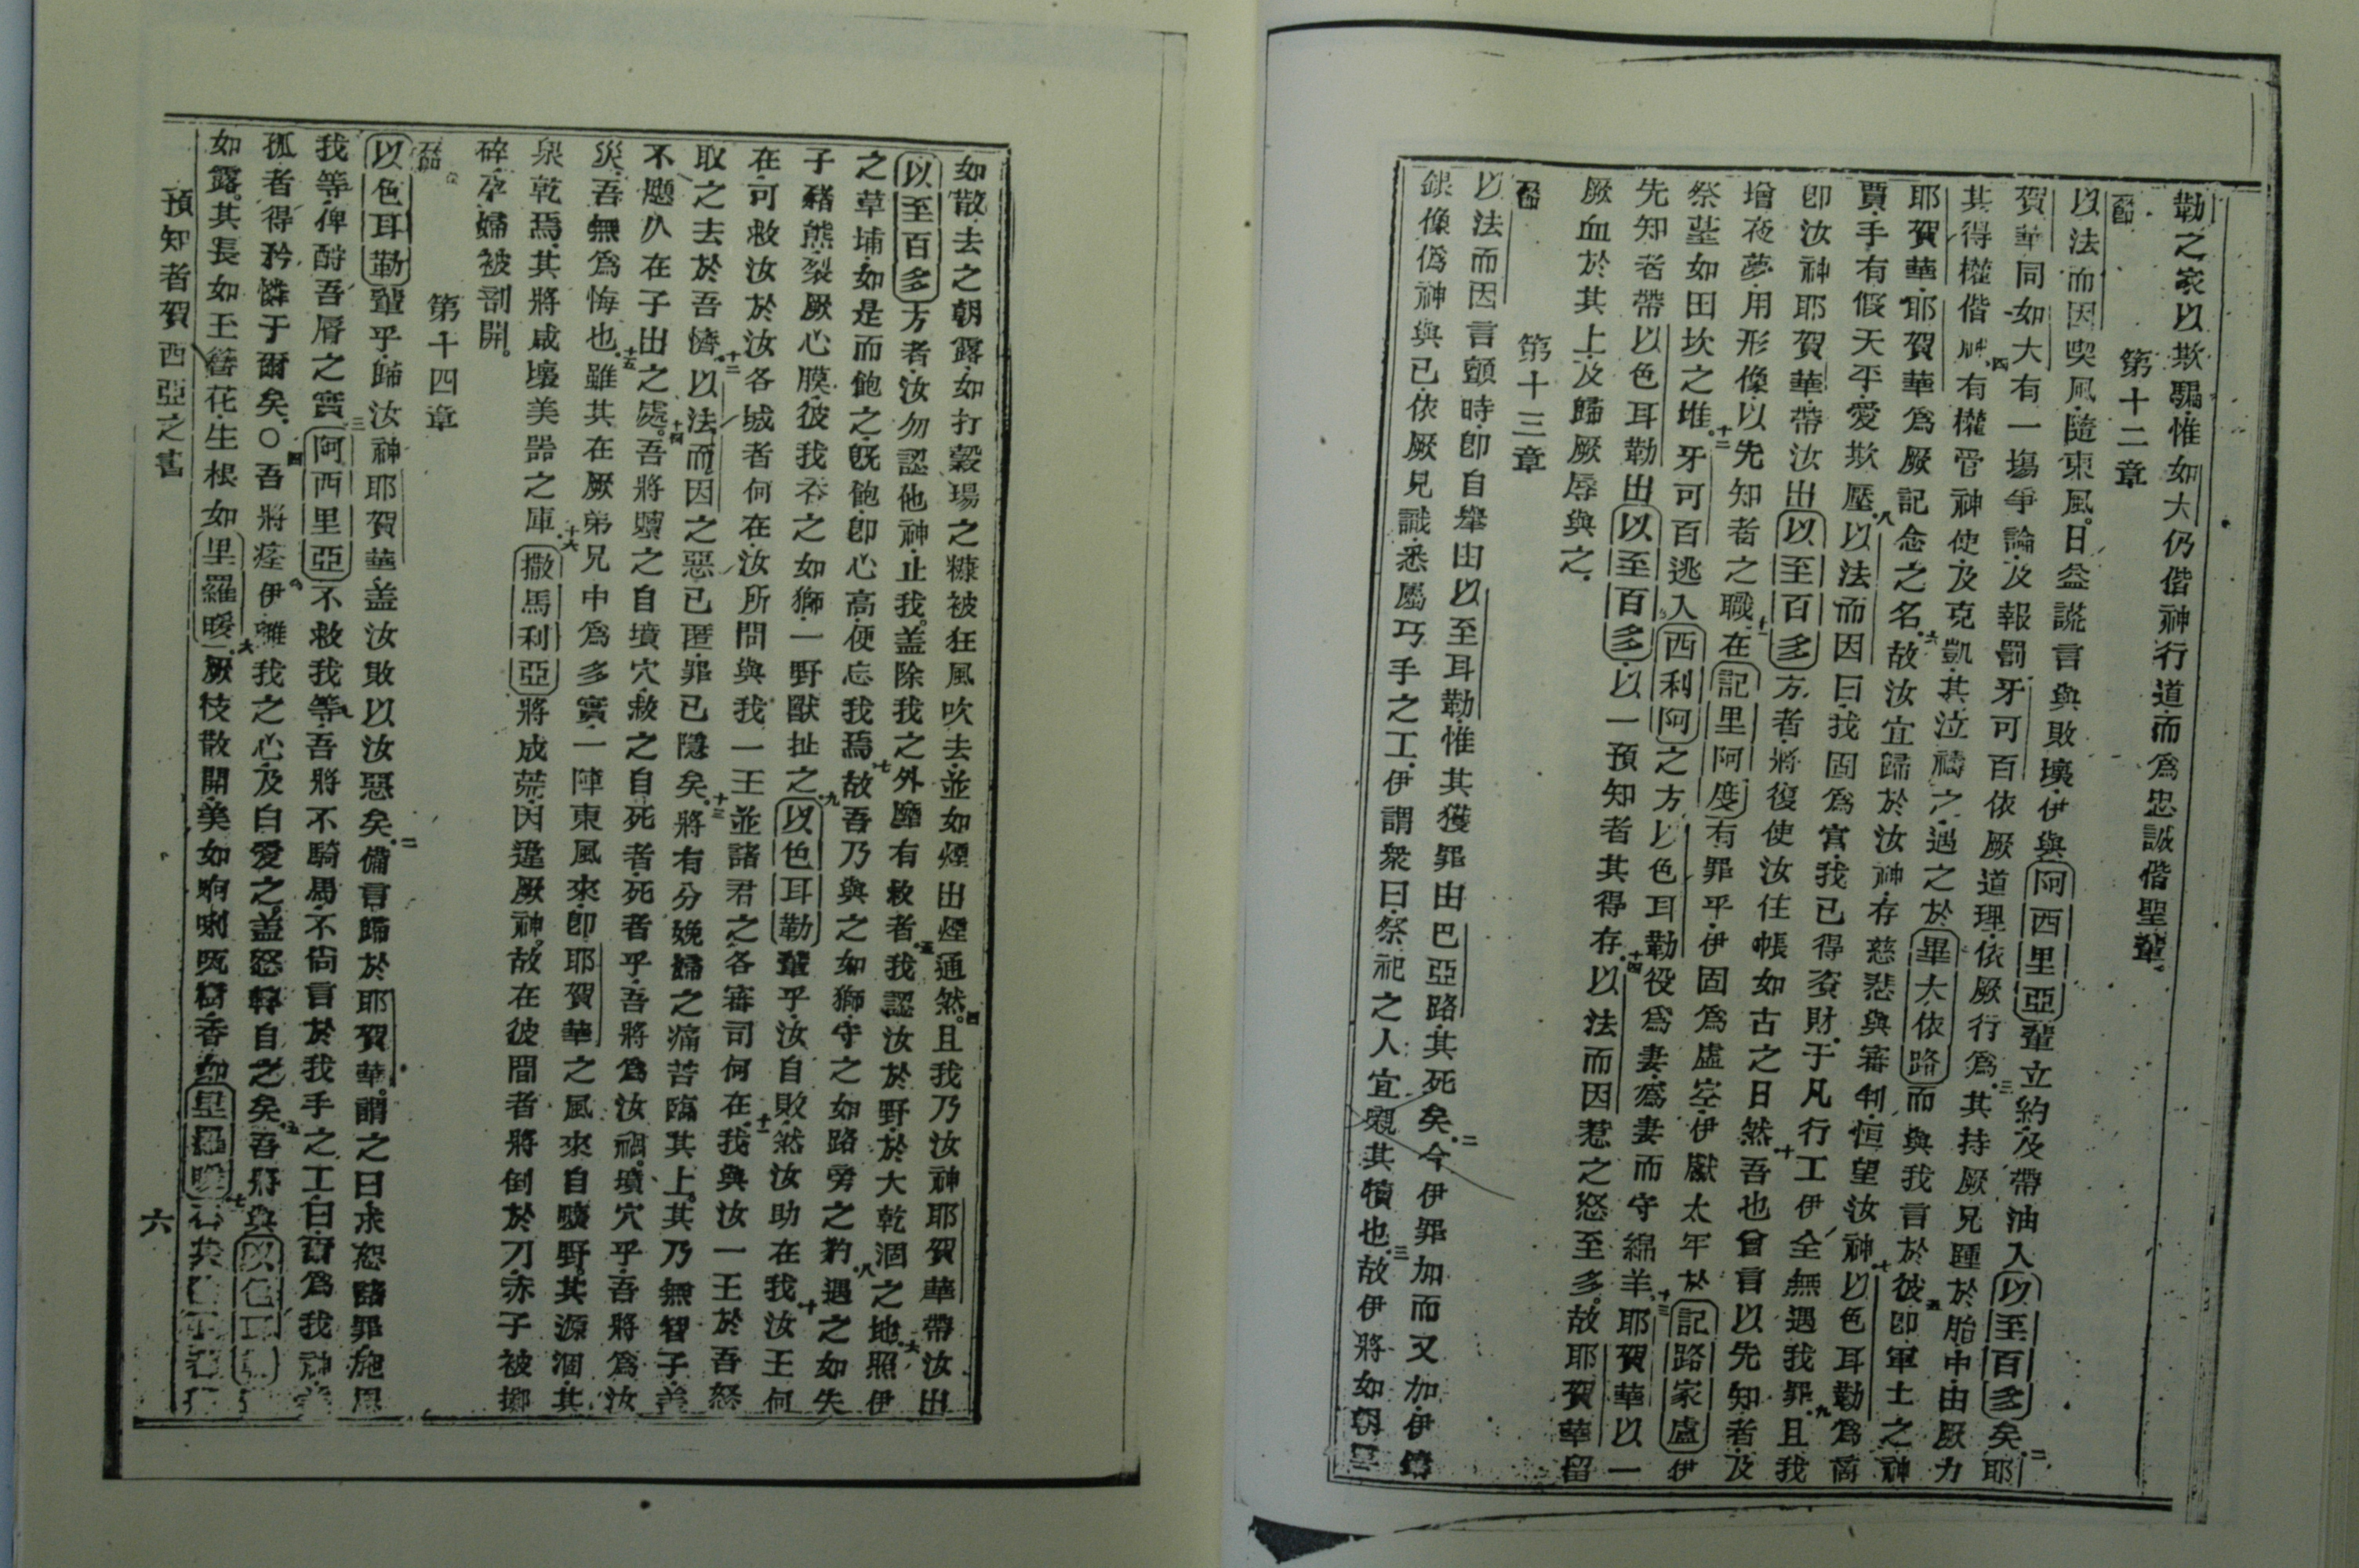 勒之家以欺騙惟如大仍偕神行道而爲忠誠偕聖輩。
第十二章
以法而因喫風隨東風。日益謊言與敗壞伊與阿西里亞輩立約及帶油入以至百多矣。二耶
賀華同如大有一塲爭論及報罰牙可百依厥道理依厥行爲。三其持厥兄踵於胎中由厥力
其得權偕神。四有權管神使及克凱其泣禱之遇之於畢大依路而與我言於彼。五卽軍士之神
耶賀華耶賀華爲厥記念之名。六故汝宜歸於汝神存慈悲與審判恒望汝神。七以色耳勒爲商
賈手有假天平愛欺壓。八以法而因曰我固爲富我已得資財于凡行工伊全無遇我罪。九且我
卽汝神耶賀華帶汝出以至百多方者將復使汝住帳如古之日然。十吾也曾言以先知者及
增夜夢用形像以先知者之職。十一在記里阿度有罪乎伊固爲虛空伊獻太牢於記路家盧伊
祭壇如田坎之堆。十二牙可百逃入西利阿之方以色耳勒役爲妻爲妻而守綿羊。十三耶賀華以一
先知者帶以色耳勒出以至百多以一預知者其得存。十四以法而因惹之怒至多故耶賀華留
厥血於其上及歸厥辱與之。
第十三章
以法而因言顫時卽自舉由以至耳勒惟其獲罪由巴亞路其死矣。二今伊罪加而又加伊鑄
銀像僞神與已依厥見識悉屬巧手之工伊謂衆曰祭祀之人宜親其犢也。三故伊將如朝雲
如散去之朝露如打穀場之糠被狂風吹去並如煙出煙通然。四且我乃汝神耶賀華帶汝出
以至百多方者汝勿認他神止我。蓋除我之外靡有救者。五我認汝於野於大乾涸之地。六照伊
之草埔如是而飽之旣飽卽心高便忘我焉。七故吾乃與之如獅守之如路旁之豹。八遇之如失
子豬熊裂厥心膜彼我吞之如獅一野獸扯之。九以色耳勒輩乎汝自敗然汝助在我。十汝王何
在可救汝於汝各城者何在汝所問與我一王並諸君之各審司何在。十一我與汝一王於吾怒
取之去於吾憤。十二以法而因之惡已匿罪已隱矣。十三將有分娩婦之痛苦臨其上。其乃無智子蓋
不應久在子出之處。十四吾將贖之自墳穴救之自死者死者乎吾將爲汝禍。墳穴乎吾將爲汝
災吾無爲悔也。十五雖其在厥弟兄中爲多實一陣東風來卽耶賀華之風來自曠野其源涸其
泉乾焉其將咸壞美器之庫。十六撒馬利亞將成荒因違厥神。故在彼間者將倒於刀赤子被擲
碎孕婦被剖開。
第十四章
以色耳勒輩乎歸汝神耶賀華蓋汝敗以汝惡矣。二備言歸於耶賀華。謂之曰求恕諸罪施恩
我等俾酧吾脣之實。三阿西里亞不救我等吾將不騎馬不尙言於我手之工曰爾爲我神蓋
孤者得矜憐于爾矣。〇四吾將痊伊離我之心及白愛之。蓋怒轉自之矣。五吾將與以色耳勒
如露。其長如玉簪花生根如里羅暖。六厥枝散開美如㖿唎㕸樹香如里羅暖
預知者賀西亞之書
六